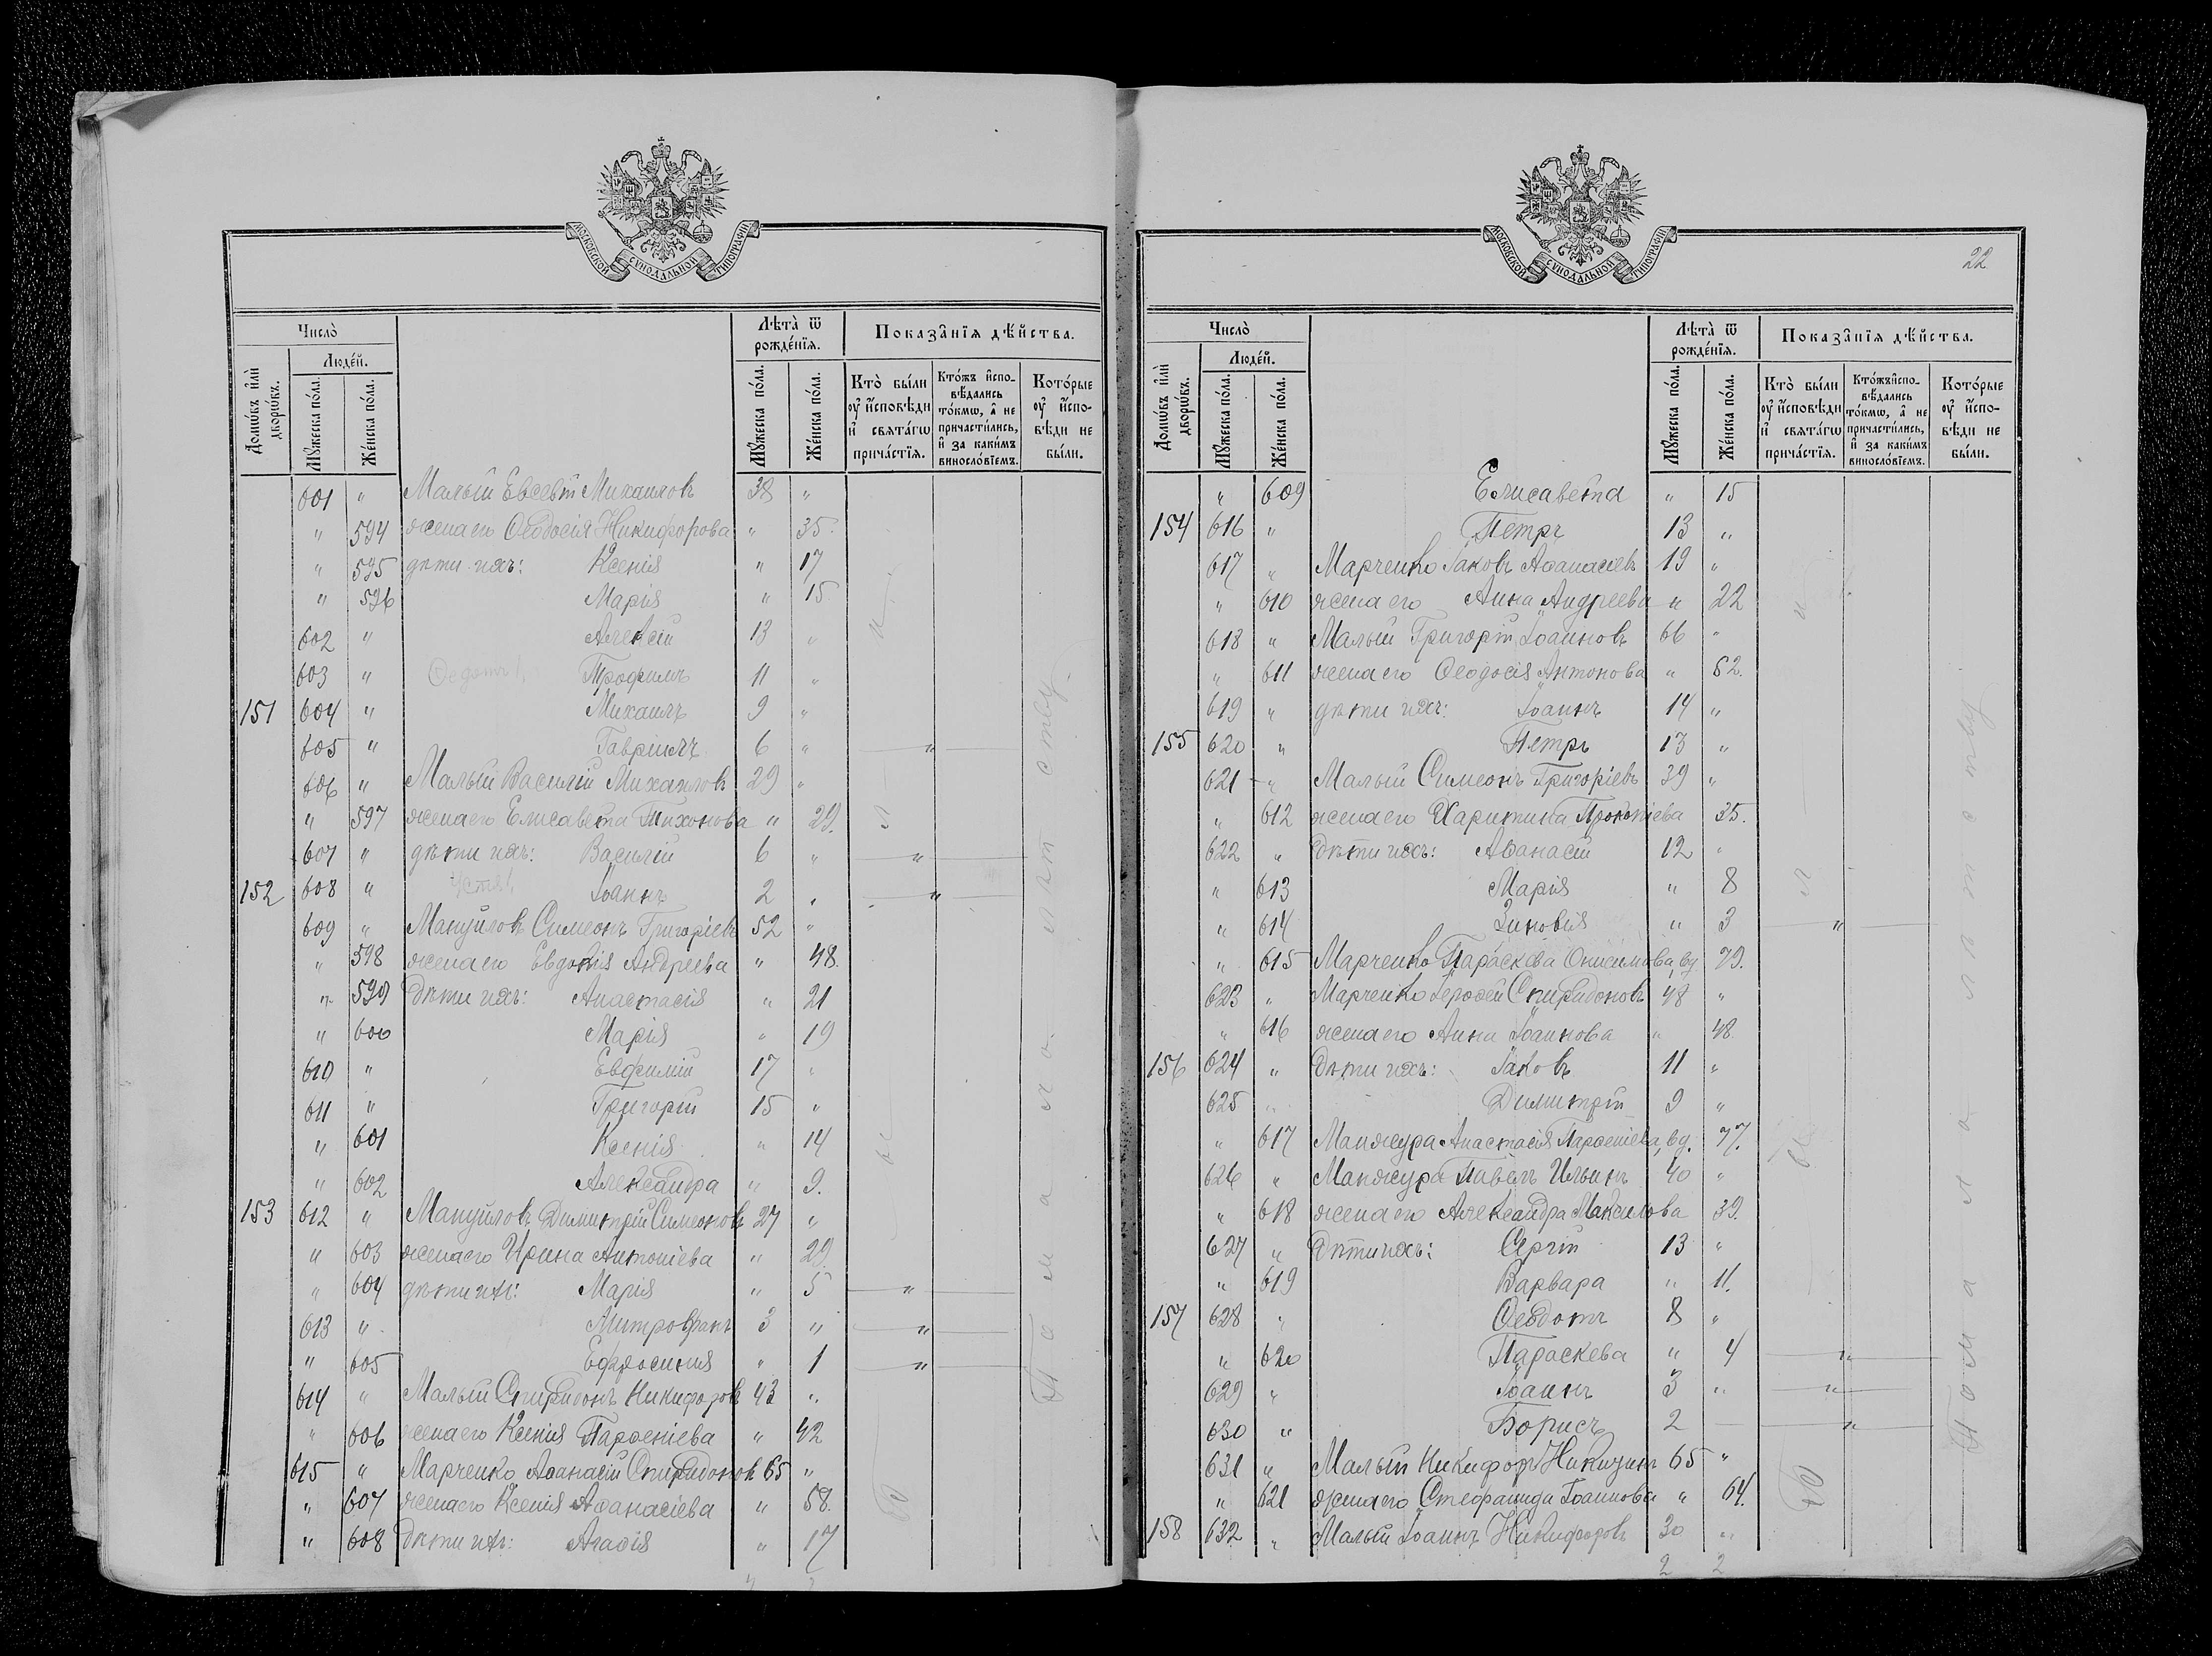 МОСКОВСКОЙ СѴНОДАЛЬНОЙ ТИПОГРАФІИ
Число̀
Домѡ́въ и҆лѝ дворѡ́въ.
Люде́й.
Мꙋ́жеска по́ла.
Же́нска по́ла.
Лѣта̀ ѿ рожде́нїѧ.
Мꙋ́жеска по́ла.
Же́нска по́ла.
Показа̑нїѧ дѣ́йства.
Кто̀ бы́ли ᲂу҆ и҆́сповѣди и҆ свѧта́гѡ прича́стїѧ.
Кто́жъ и҆спо-вѣ́дались то́кмѡ, а҆ не причасти́лись, и҆ за каки́мъ винослові́емъ.
Кото́рые ᲂу҆ и҆́спо-вѣди не бы́ли.
601 " Малый Евсевій Михаиловъ 38 "
" 594 жена его Ѳеодосія Никифорова " 35.
" 595 дѣти ихъ: Ксенія " 17
" 596 Марія " 15
602 " Алексій 13 "
603 " Трофимъ 11 "
151 604 " Михаилъ 9 "
605 " Гавріилъ 6 " "
606 " Малый Василій Михаиловъ 29 "
" 597 жена его Елисавета Тихонова " 29.
607 " дѣти ихъ: Василій 6 " "
152 608 " Іоаннъ 2 " "
609 " Мануйловъ Симеонъ Григоріевъ 52 "
" 598 жена его Евдокія Андреева " 48.
" 599 Дѣти ихъ: Анастасія " 21
" 600 Марія " 19
610 " Евфимій 17 "
611 " Григорій 15 "
" 601 Ксенія " 14
" 602 Александра " 9.
153 612 " Мануйловъ Димитрій Симеоновъ 27 "
" 603 жена его Ирина Антоніева " 29.
" 604 дѣти ихъ: Марія " 5 "
613 " Митрофанъ 3 " "
" 605 Ефросинія " 1 "
614 " Малый Спиридонъ Никифоровъ 43 "
" 606 жена его Ксенія Парѳеніева " 42
615 " Марченко Аѳанасій Спиридоновъ 65 "
" 607 жена его Ксенія Аѳанасіева " 58.
" 608 Дѣти ихъ: Агаѳія " 17
По малолѣтству.
МОСКОВСКОЙ СѴНОДАЛЬНОЙ ТИПОГРАФІИ
22
Число̀
Домѡ́въ и҆лѝ дворѡ́въ.
Люде́й.
Мꙋ́жеска по́ла.
Же́нска по́ла.
Лѣта̀ ѿ рожде́нїѧ.
Мꙋ́жеска по́ла.
Же́нска по́ла.
Показа̑нїѧ дѣ́йства.
Кто̀ бы́ли ᲂу҆ и҆́сповѣди и҆ свѧта́гѡ прича́стїѧ.
Кто́жъ и҆спо-вѣ́дались то́кмѡ, а҆ не причасти́лись, и҆ за каки́мъ винослові́емъ.
Кото́рые ᲂу҆ и҆́спо-вѣди не бы́ли.
" 609 Елисавета " 15
154 616 " Петръ 13 "
617 " Марченко Іаковъ Аѳанасіевъ 19 "
" 610 жена его Анна Андреева " 22
618 " Малый Григорій Іоанновъ 66 "
" 611 жена его Ѳеодосія Антонова " 52.
619 " дѣти ихъ: Іоаннъ 14 "
155 620 " Петръ 13 "
621 " Малый Симеонъ Григоріевъ 39 "
" 612 жена его Харитина Прокопіева 35.
622 " Дѣти ихъ: Аѳанасій 12 "
" 613 Марія " 8
" 614 Зиновія " 3 "
" 615 Марченко Параскева Онисимова, вд. 79.
623 " Марченко Іероѳей Спиридоновъ 48 "
" 616 жена его Анна Іоаннова " 48.
156 624 " Дѣти ихъ: Іаковъ 11 "
625 " Димитрій 9 "
" 617 Манжура Анастасія Парѳеніева, вд. 77.
626 " Манжура Павелъ Ильинъ 40 "
" 618 жена его Александра Максимова 39.
627 " Дѣти ихъ: Сергій 13 "
" 619 Варвара " 11.
157 628 " Ѳеодотъ 8 "
" 620 Параскева " 4 "
629 " Іоаннъ 3 " "
630 " Борисъ 2 "
631 " Малый Никифоръ Никитинъ 65 "
" 621 жена его Стефанида Іоаннова " 64.
158 632 " Малый Іоаннъ Никифоровъ 30 "
2 2
По малолѣтству